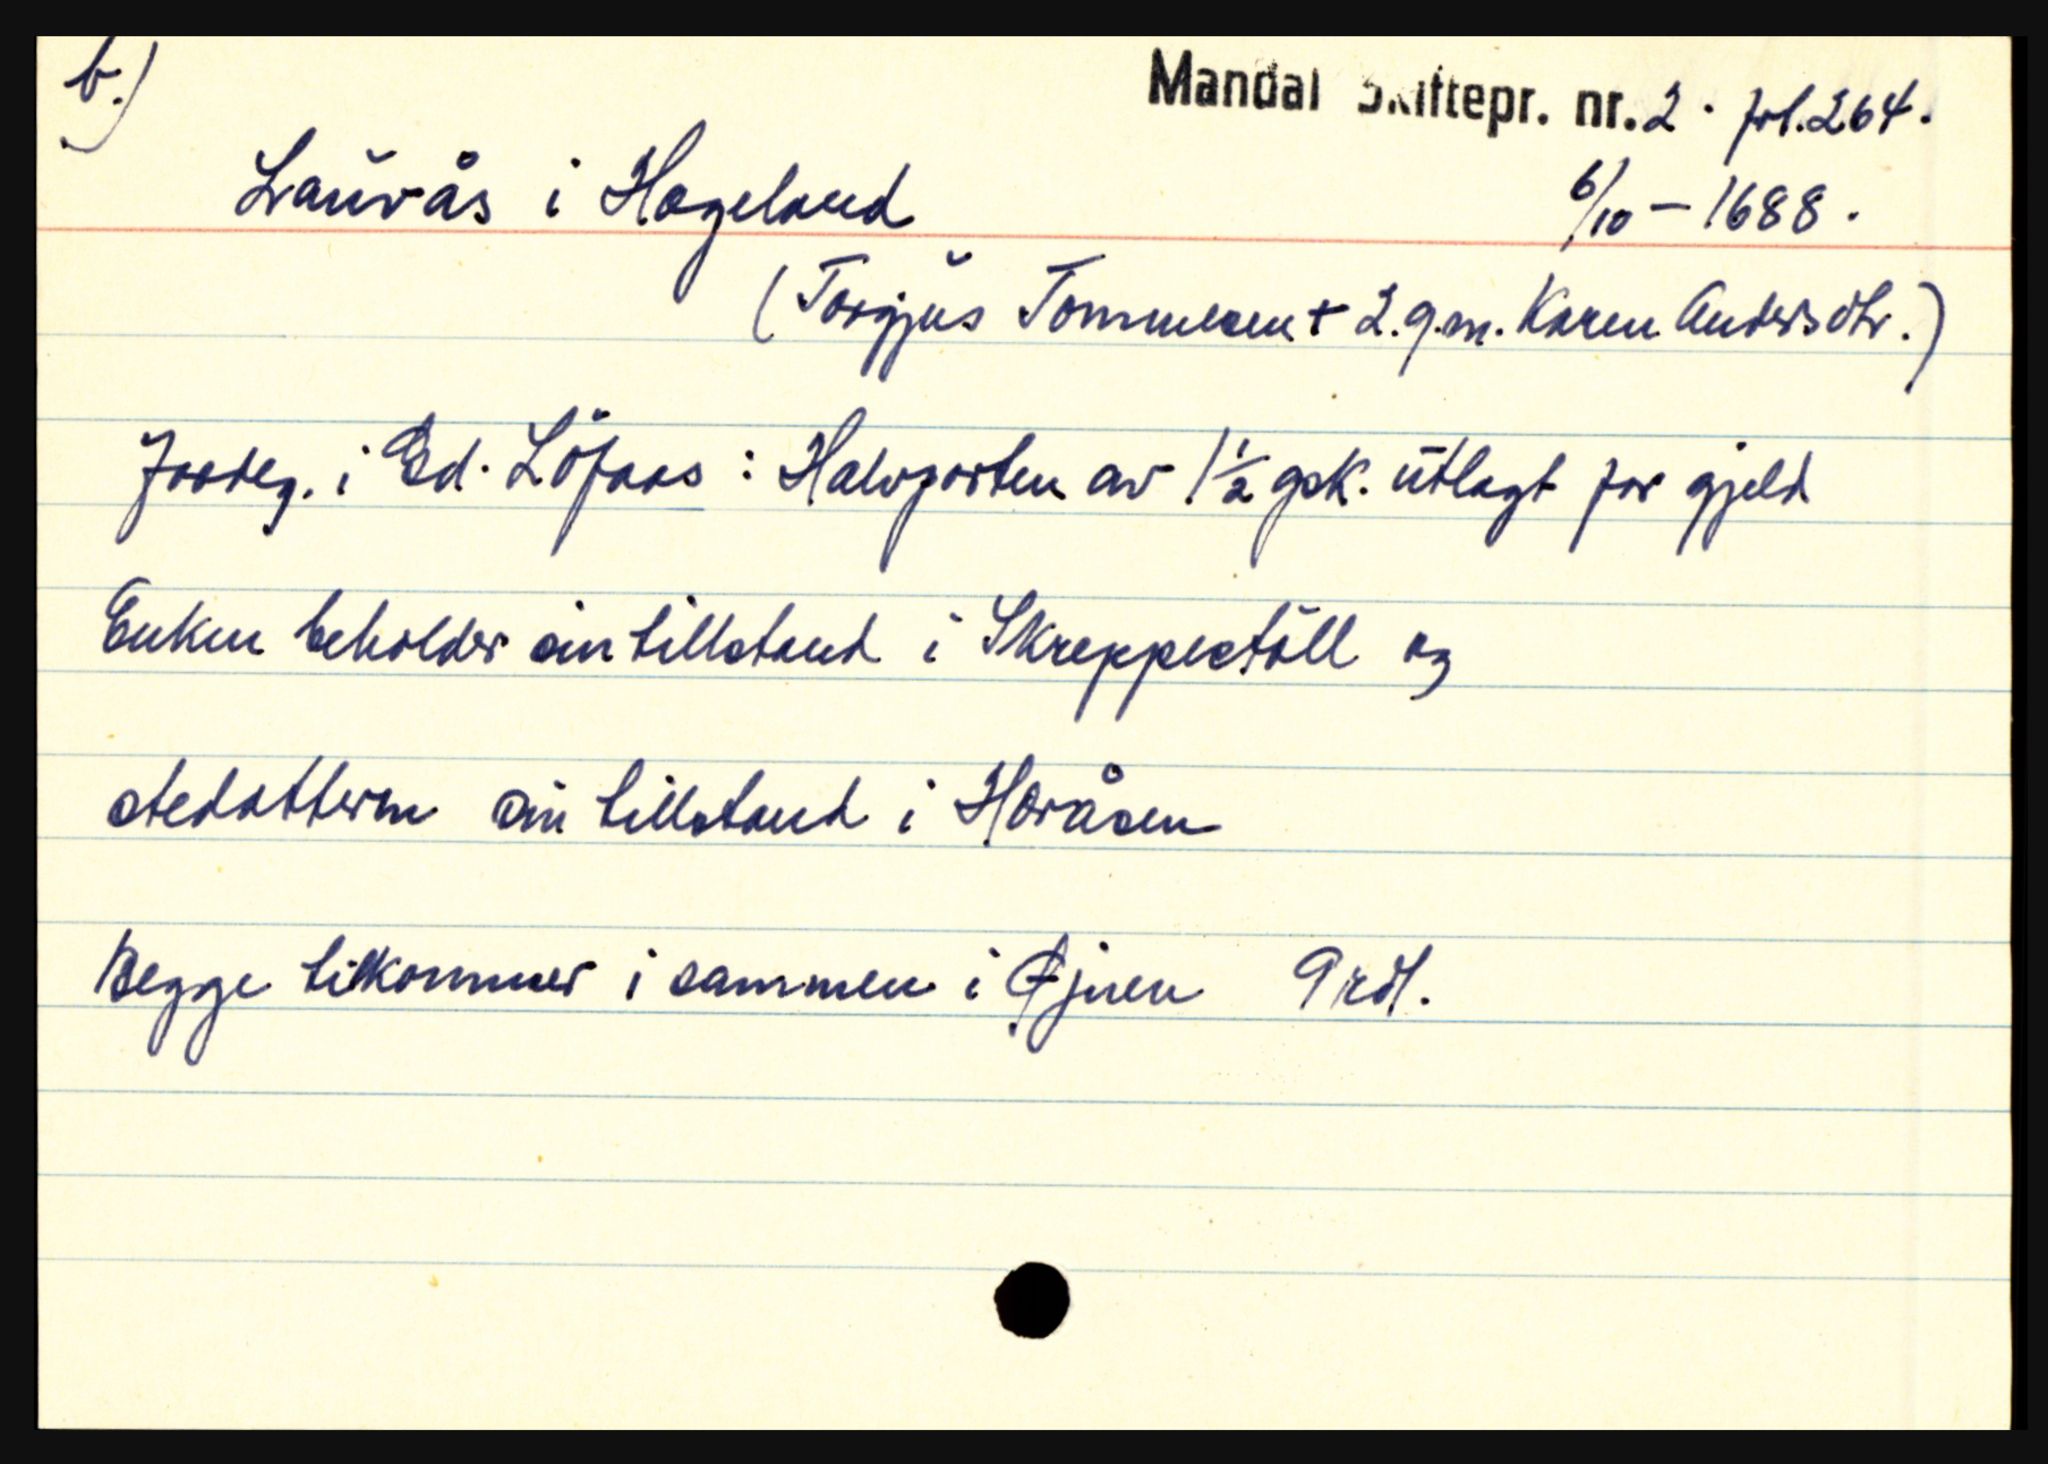 b.)
Mandal Skiftepr. nr. 2. fol. 264.
Lauvås i Hægeland
6/10 - 1688.
(Torgjus Tommesen + 2. g.m. Karen Andersdtr.)
Jordeg. i Ød. Löfaas : Halvparten av 1 1/2 gsk. utlagt for gjeld
Enken beholder sin tillstand i Skreppestöll og
stedatteren sin tillstand i Høråsen
Begge tilkommer i sammen i Øjnen 9 rdl.